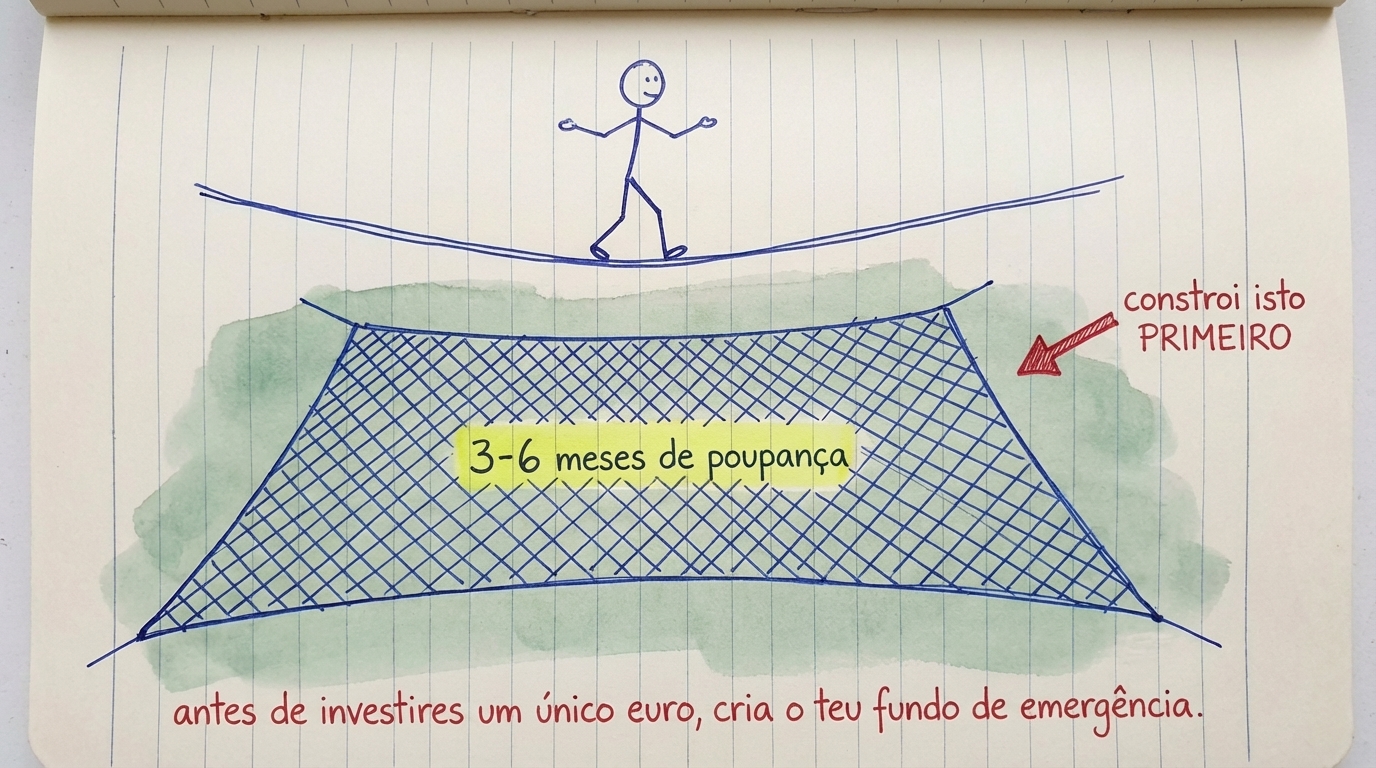 constroi isto
PRIMEIRO
3-6 meses de poupança
antes de investires um único euro, cria o teu fundo de emergência.